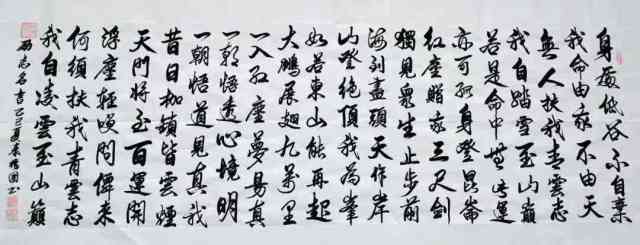 身處低谷不自棄
我命由我不由天
無人扶我青雲志
我自踏雪至山巔
若是命中無此運
亦可孤身登昆崙
紅塵贈我三尺劍
獨見眾生止步前
海到盡頭天作岸
山登絕頂我為峯
如若東山能再起
大鵬展翅九萬里
一入紅塵夢易真
一朝悟透心境明
一朝悟道見真我
昔日枷鎖皆雲煙
天門將至百運開
浮塵輕嘆問來
何須扶我青雲志
我自凌雲至山巔